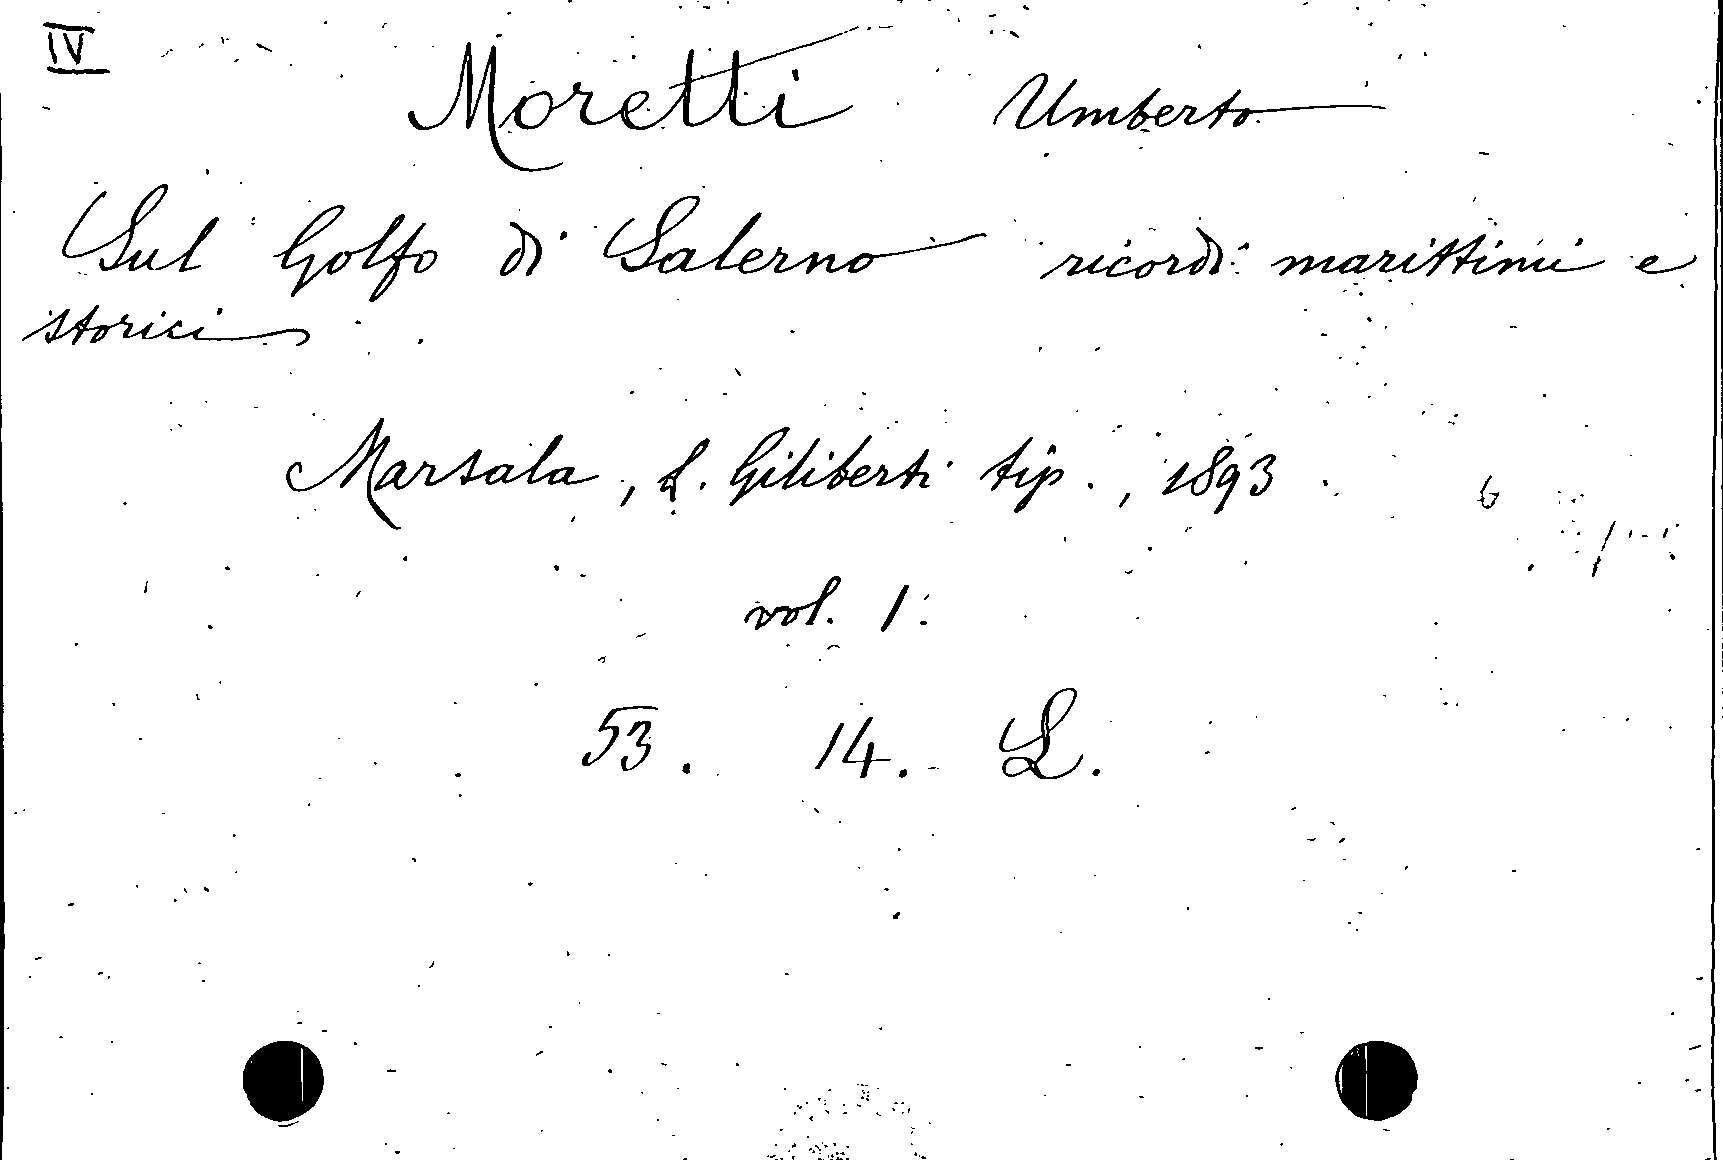 IV
Moretti Umberto
Sul Golfo di Salerno ricordi marittimi e
storici
Marsala, L. Giliberti tip., 1893
6
vol. 1.
53. 14. L.